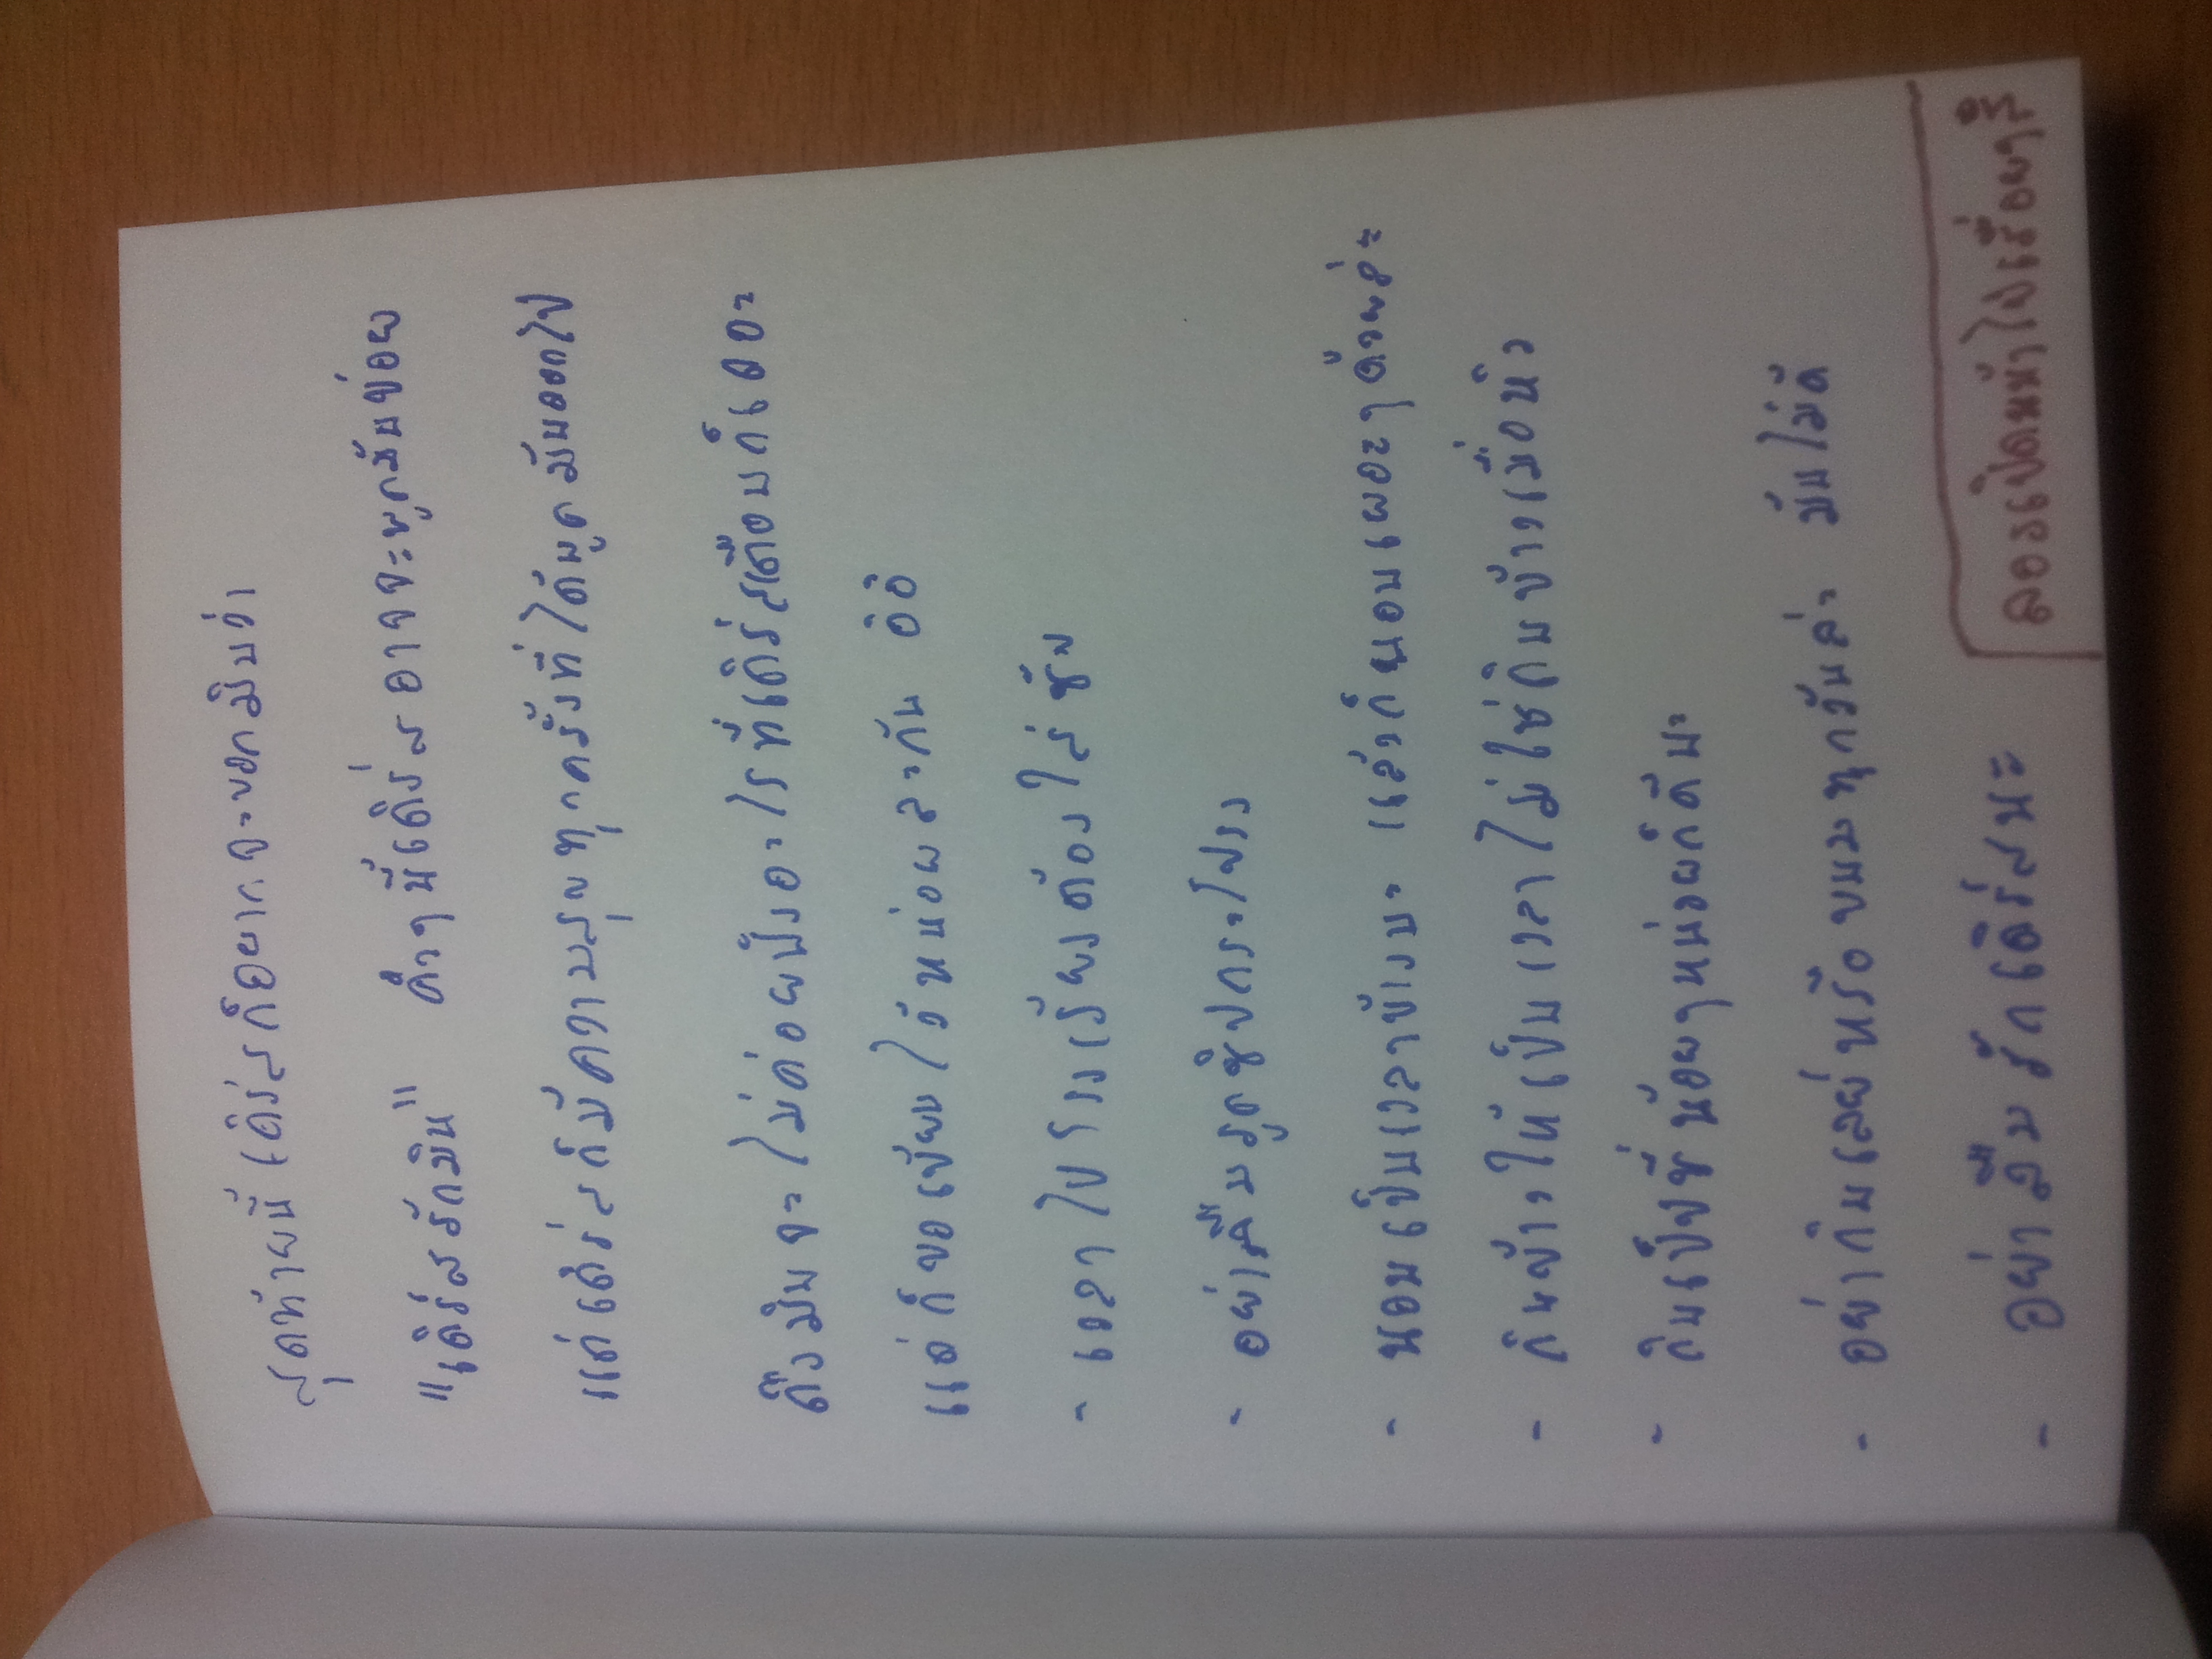 สุดท้ายนี้ เดิร์สก็อยากจะบอกมินว่า
"เดิร์สรักมิน" คำๆนี้เดิร์ส อาจจะพูกมันบ่อย
แต่เดิร์สก็มีความสุขทุกครั้งที่ได้พูดมันออกไป
ถึงมินจะไม่ค่อยฟังอะไรที่เดิร์สเตือนก็เถอะ
แต่ก็ขอเขียนไว้หน่อยละกัน อิอิ
- เวลาไปโรงเรียงต้องใส่ซับ
- อย่าลืมรูดซิปกระโปรง
- นอนเป็นเวลาบ้างนะ แล้วก็นอนเผอะๆด้วยล่ะ
- กินข้าวให้เป็นเวลา ไม่ใช่กินข้าวเมื่อหิว
- กินเป็ปซี่น้อยๆหน่อยก็ดีนะ
- อย่ากินเลย์หรือขนมทุกวันล่ะ มันไม่ดี
- อย่าลืม รักเดิร์สนะ
ลองเปิดหน้าไปเรื่อยๆสิ